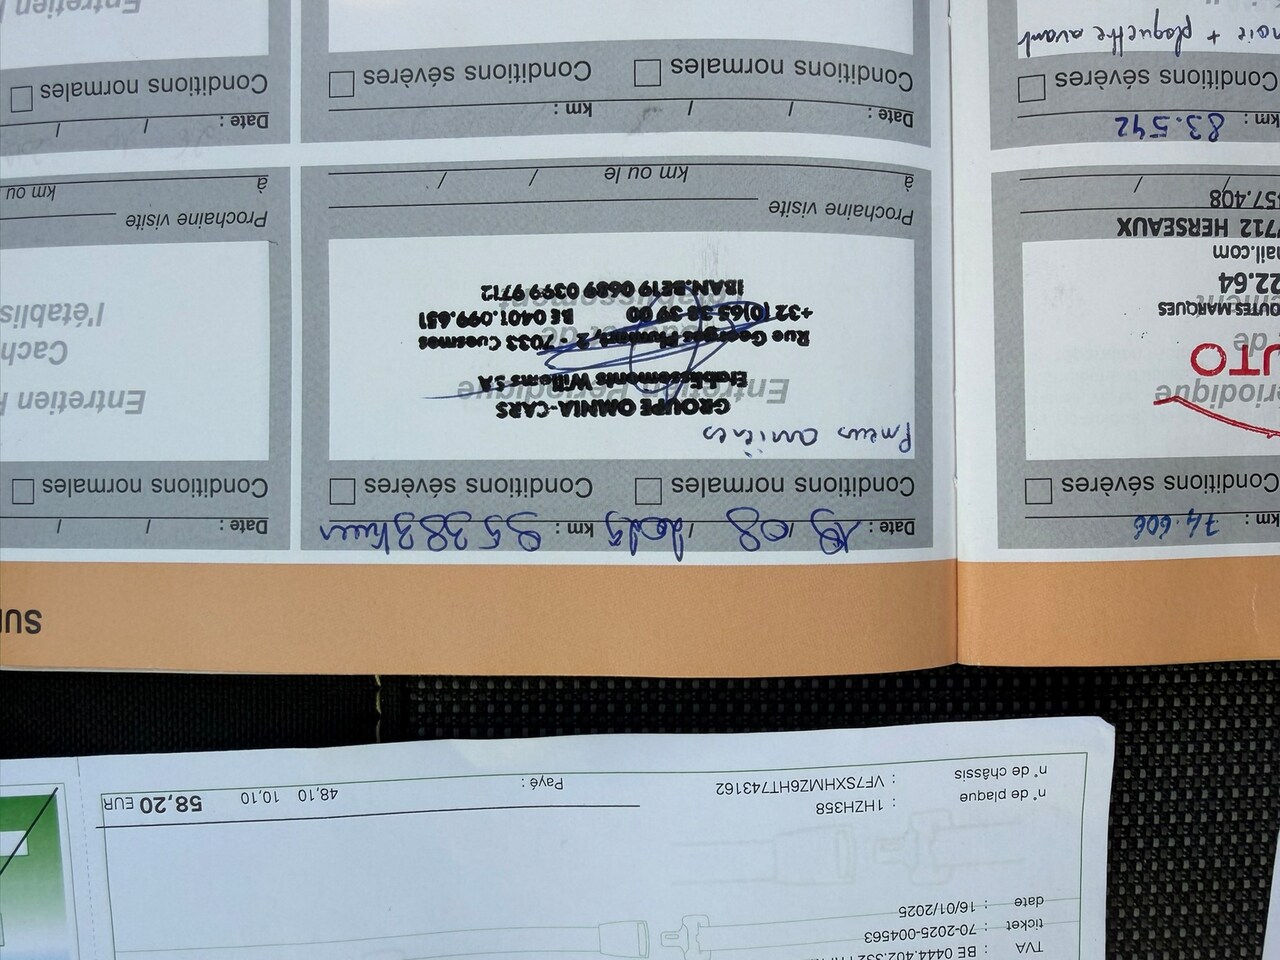 TVA : BE 0444.402.332
ticket : 70-2025-004563
date : 16/01/2025
n° de plaque : 1HZH358
n° de châssis : VF7SXHMZ6HT743162
Payé : 48,10 10,10 58,20 EUR
km : 74.606
Conditions sévères
UTO
de
TOUTES MARQUES
22.64
mail.com
7712 HERSEAUX
457.408
/ /
km : 83.542
Conditions sévères
noir + plaquette avant
Date : 19/08/2025 km : 95383 kms
Conditions normales Conditions sévères
Pneus arrières
GROUPE OMNIA-CARS
Entretien Périodique
Etablissements Willems SA
Rue Georges Plumet, 2 - 7033 Cuesmes
+32 (0)65 38 39 00 BE 0401.099.631
IBAN.BE19 0689 0399 9712
Prochaine visite
à km ou le / /
Date : / / km :
Conditions normales Conditions sévères
SUI
Date : / /
Conditions normales
Entretien P
Cach
l'établis
Prochaine visite
à km ou
Date : / /
Conditions normales
Entretien